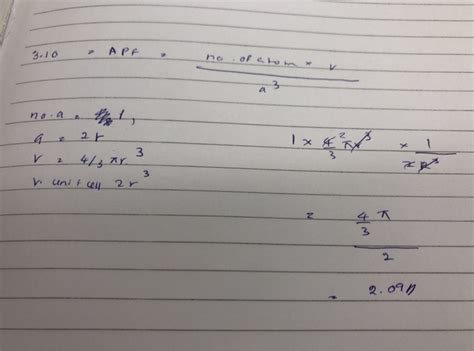 3.10 = APF = no. of atom × v
a³
no. a = 1,
a = 2r
v = 4/3 πr³
v unit cell 2r³
1 × 4²/3 πr³ × 1/2r³
= 4/3 π
2
= 2.09